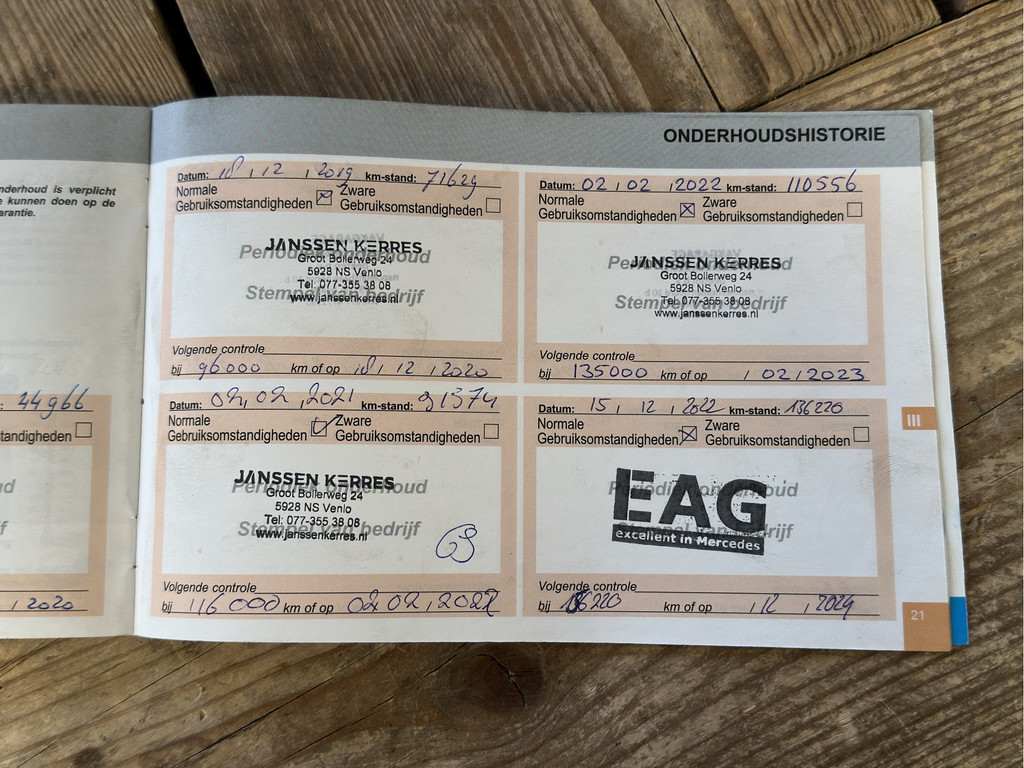 ONDERHOUDSHISTORIE
nderhoud is verplicht
e kunnen doen op de
arantie.
: 44966
tandigheden
, 2020
Datum: 18 , 12 , 2019 km-stand: 71629
Normale Gebruiksomstandigheden Zware Gebruiksomstandigheden
Periodiek onderhoud
Stempel van bedrijf
JANSSEN KERRES
Groot Bollerweg 24
5928 NS Venlo
Tel: 077-355 38 08
www.janssenkerres.nl
Volgende controle
bij 96000 km of op 18 , 12 , 2020
Datum: 02 , 02 , 2022 km-stand: 110556
Normale Gebruiksomstandigheden Zware Gebruiksomstandigheden
Periodiek onderhoud
Stempel van bedrijf
JANSSEN KERRES
Groot Bollerweg 24
5928 NS Venlo
Tel: 077-355 38 08
www.janssenkerres.nl
Volgende controle
bij 135000 km of op , 02 , 2023
Datum: 02 , 02 , 2021 km-stand: 91374
Normale Gebruiksomstandigheden Zware Gebruiksomstandigheden
Periodiek onderhoud
Stempel van bedrijf
JANSSEN KERRES
Groot Bollerweg 24
5928 NS Venlo
Tel: 077-355 38 08
www.janssenkerres.nl
Volgende controle
bij 116000 km of op 02 02 , 2022
Datum: 15 , 12 , 2022 km-stand: 136220
Normale Gebruiksomstandigheden Zware Gebruiksomstandigheden
Periodiek onderhoud
Stempel van bedrijf
EAG
excellent in Mercedes
Volgende controle
bij km of op , 12 , 2024
III
21